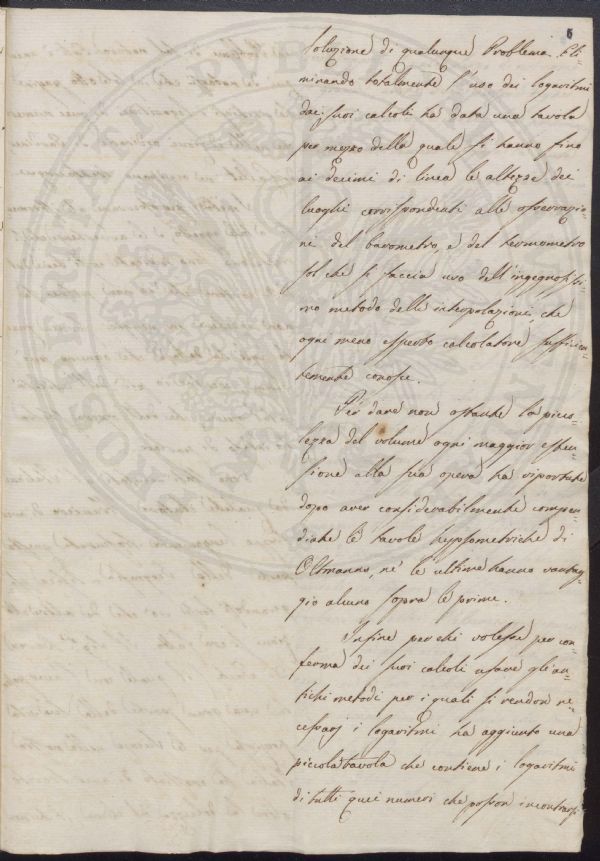 6
soluzione di qualunque Problema. Eli=
minando totalmente l'uso dei logaritmi
dai suoi calcoli ha data una tavola
per mezzo della quale si hanno fino
ai decimi di linea le altezze dei
luoghi corrispondenti alle osservazio=
ni del barometro, e del termometro
sol che si faccia uso dell'ingegnosissi=
mo metodo delle interpolazioni, che
ogni meno esperto calcolatore sufficien=
temente conosce.
Per dare non ostante la picco=
lezza del volume ogni maggior esten=
sione alla sua opera ha riportate
dopo aver considerabilmente compen=
diate le tavole hypsometriche di
Oltmanns, né le ultime hanno vantag=
gio alcuno sopra le prime.
Infine per chi volesse per con=
ferma dei suoi calcoli usare gli an=
tichi metodi per i quali si rendon ne=
cessarj i logaritmi ha aggiunto una
piccola tavola che contiene i logaritmi
di tutti quei numeri che posson incontrarsi